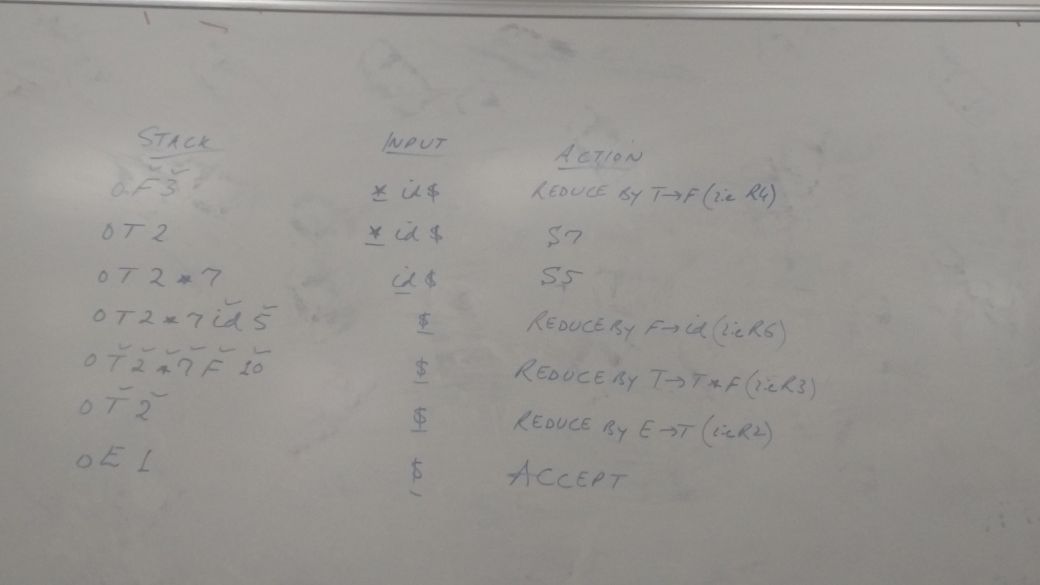 STACK INPUT ACTION
0 F 3 * id $ REDUCE BY T→F (ie R4)
0 T 2 * id $ S7
0 T 2 * 7 id $ S5
0 T 2 * 7 id 5 $ REDUCE BY F→id (ie R6)
0 T 2 * 7 F 10 $ REDUCE BY T→T*F (ie R3)
0 T 2 $ REDUCE BY E→T (ie R2)
0 E 1 $ ACCEPT